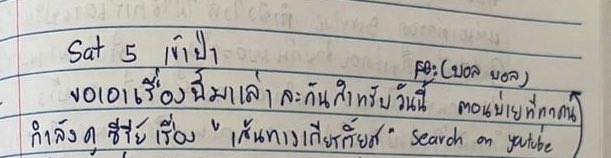 Sat 5 เข้าป่า
(บอล บอล)
ขอเอาเรื่องนี้มาเล่า ละกันสำหรับวันนี้ ตอนบ่ายที่
กำลังดู ซีรี่ย์ เรื่อง "เส้นทางเกียรติ์ยศ" Search on youtube